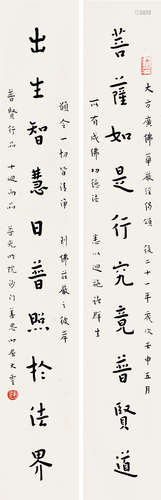 大方廣佛華嚴經偈頌 後二十一年歲次壬申五月
菩薩如是行究竟普賢道
所有成佛功德法 悉以迴施諸群生
願令一切皆清淨 到佛莊嚴之彼岸
出生智慧日普照於法界
普賢行品 十迴向品 沙門善思